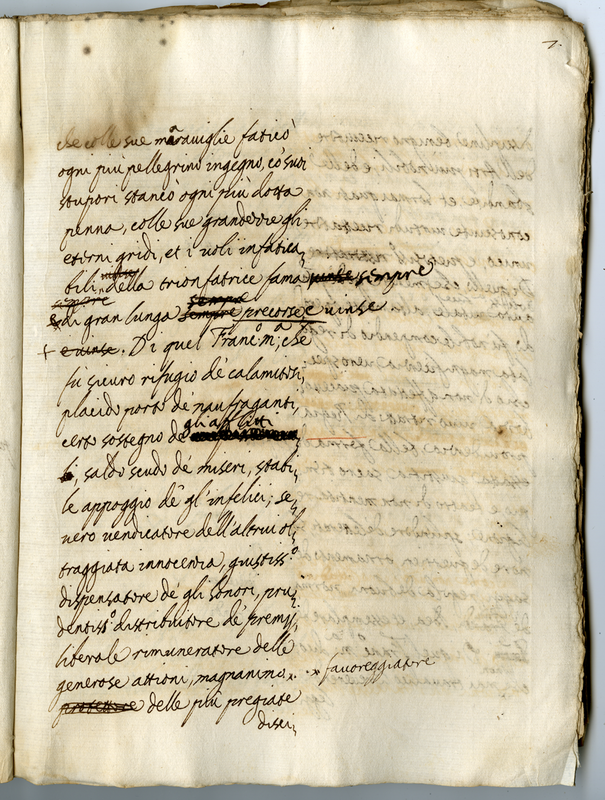 7.
che colle sue maraviglie faticò
ogni più pellegrino ingegno, co' suoi
stupori stancò ogni più dotta
penna, colle sue grandezze gli
eterni gridi, et i uoli infatica,
bili della trionfatrice fama uinse sempre
sempre sempre
di gran lunga sempre precorse, e uinse
+ e uinse. Di quel Franc.º m.ª, che
fù sicuro rifugio de' calamitosi,
placido porto de' naufraganti,
certo sostegno de gli afflitti
saldo scudo de' miseri, stabi,
le appoggio de' gl'infelici; se,
uero uendicatore dell'altrui ol,
traggiata innocenza, giustiss.º
dispensatore de' gli honori, pru,
dentiss.º distributore de' premij,
liberale rimuneratore delle
generose attioni, magnanimo × × fauoreggiatore
protettore delle più pregiate
disci,